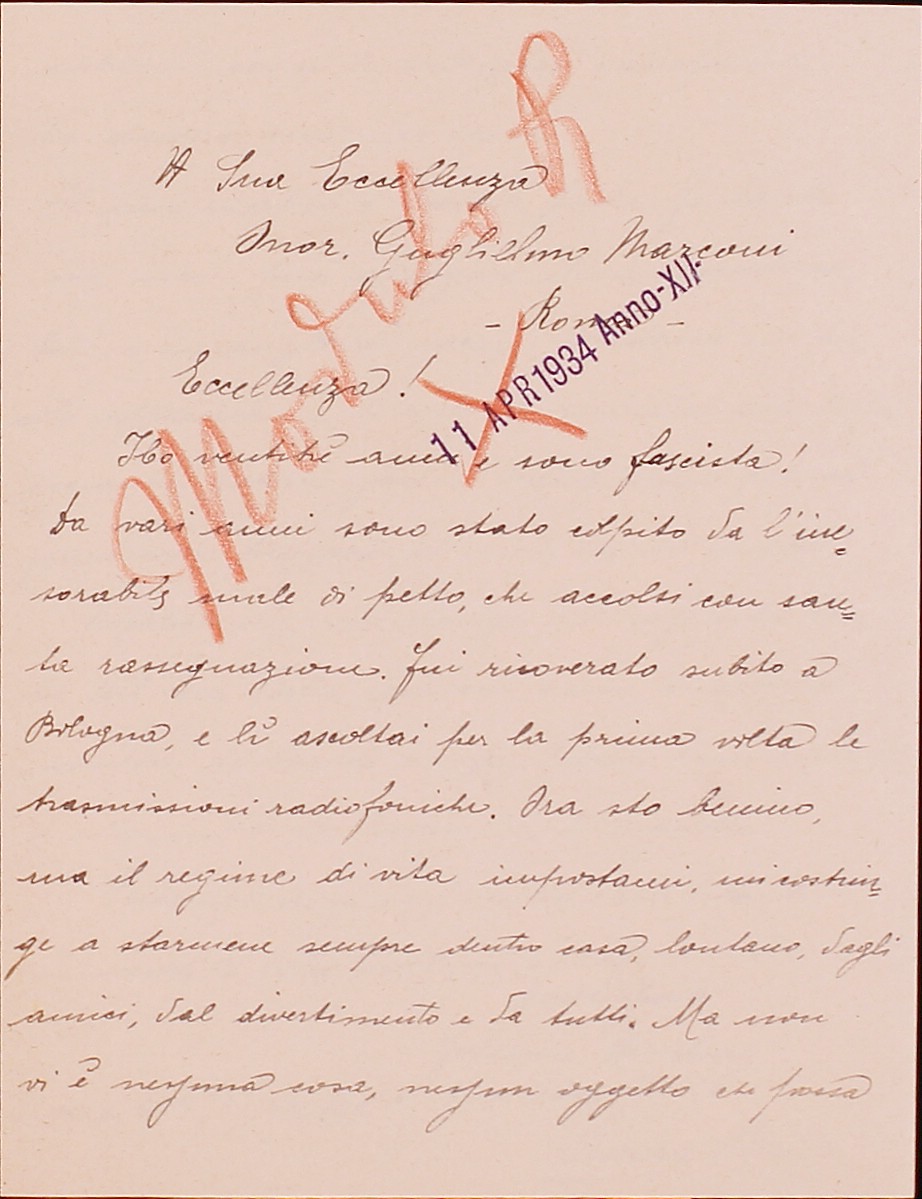 A Sua Eccellenza
Onor. Guglielmo Marconi
- Roma -
Eccellenza!
11 APR 1934 Anno-XII
Modulo R
Ho ventitrè anni e sono fascista!
Da vari anni sono stato colpito da l'ine=
sorabile male di petto, che accolsi con san=
ta rassegnazione. Fui ricoverato subito a
Bologna, e lì ascoltai per la prima volta le
trasmissioni radiofoniche. Ora sto benino,
ma il regime di vita impostami, mi costrin=
ge a starmene sempre dentro casa, lontano, dagli
amici, dal divertimento e da tutti. Ma non
vi è nessuna cosa, nessun oggetto che possa